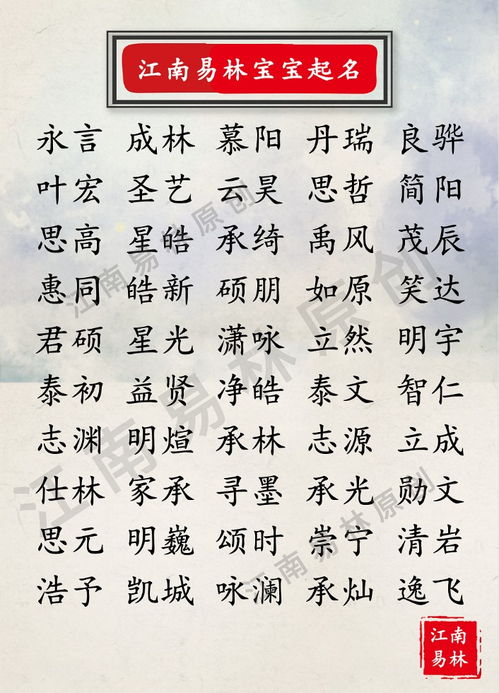 江南易林宝宝起名
永言 成林 慕阳 丹瑞 良骅
叶宏 圣艺 云昊 思哲 简阳
思高 星皓 承绮 禹风 茂辰
惠同 皓新 硕朋 如原 笑达
君硕 星光 潇咏 立然 明宇
泰初 益贤 净皓 泰文 智仁
志渊 明煊 承林 志源 立成
仕林 家承 寻墨 承光 勋文
思元 明巍 颂时 崇宁 清岩
浩予 凯城 咏澜 承灿 逸飞
江南易林原创
江南易林原创
江南易林原创
江南
易林